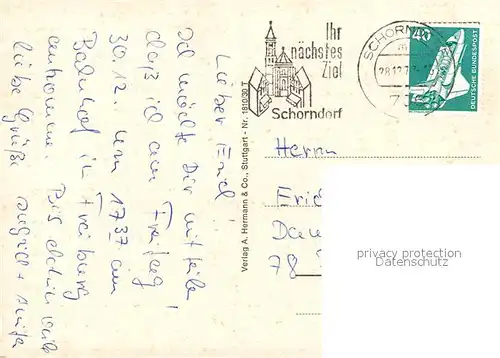 Lieber Erich!
Ich möchte Dir mitteilen
daß ich am Freitag
30.12. um 17³⁷ am
Bahnhof in Freiburg
ankomme. Bis dahin viele
liebe Grüße
Verlag A. Hermann & Co., Stuttgart - Nr. 1810/30 T
Ihr
nächstes
Ziel
Schorndorf
SCHORND
28.12.7
40
DEUTSCHE BUNDESPOST
Herrn
Eric
78
privacy protection
Datenschutz